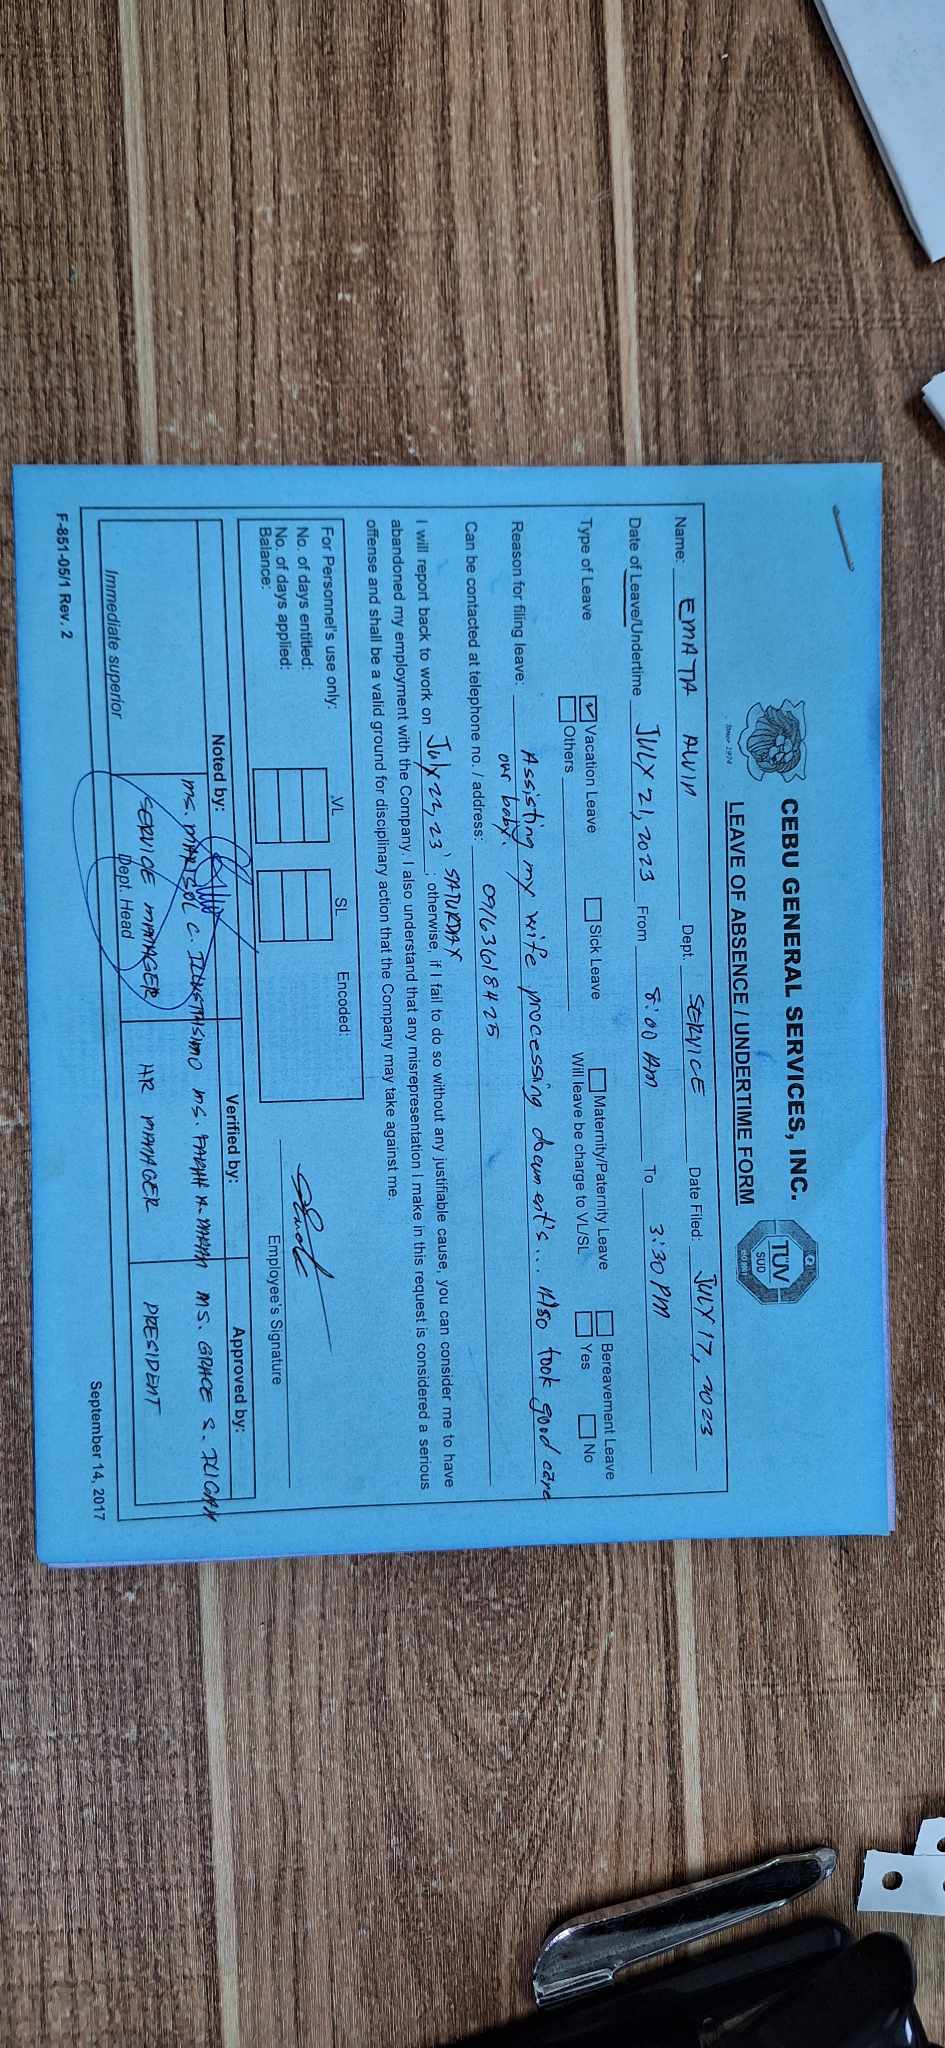 CEBU GENERAL SERVICES, INC.
Since 1974
Q
TÜV
SUD
ISO 9001
LEAVE OF ABSENCE / UNDERTIME FORM
Name: EMATA ALVIN Dept. SERVICE Date Filed: JULY 17, 2023
Date of Leave/Undertime JULY 21, 2023 From 8:00 AM To 3:30 PM
Type of Leave Vacation Leave Sick Leave Maternity/Paternity Leave Bereavement Leave
Others Will leave be charge to VL/SL Yes No
Reason for filing leave: Assisting my wife processing document's... Also took good care
our baby.
Can be contacted at telephone no. / address: 09163618425
I will report back to work on July 22, 23' SATURDAY ; otherwise, if I fail to do so without any justifiable cause, you can consider me to have
abandoned my employment with the Company. I also understand that any misrepresentation I make in this request is considered a serious
offense and shall be a valid ground for disciplinary action that the Company may take against me.
For Personnel's use only: VL SL Encoded:
No. of days entitled:
No. of days applied:
Balance:
Employee's Signature
Noted by: Verified by: Approved by:
MS. MARISOL C. MS. FARAH A. MS. GRACE S. ILIGAN
SERVICE MANAGER HR MANAGER PRESIDENT
Immediate superior Dept. Head
September 14, 2017
F-851-05/1 Rev. 2